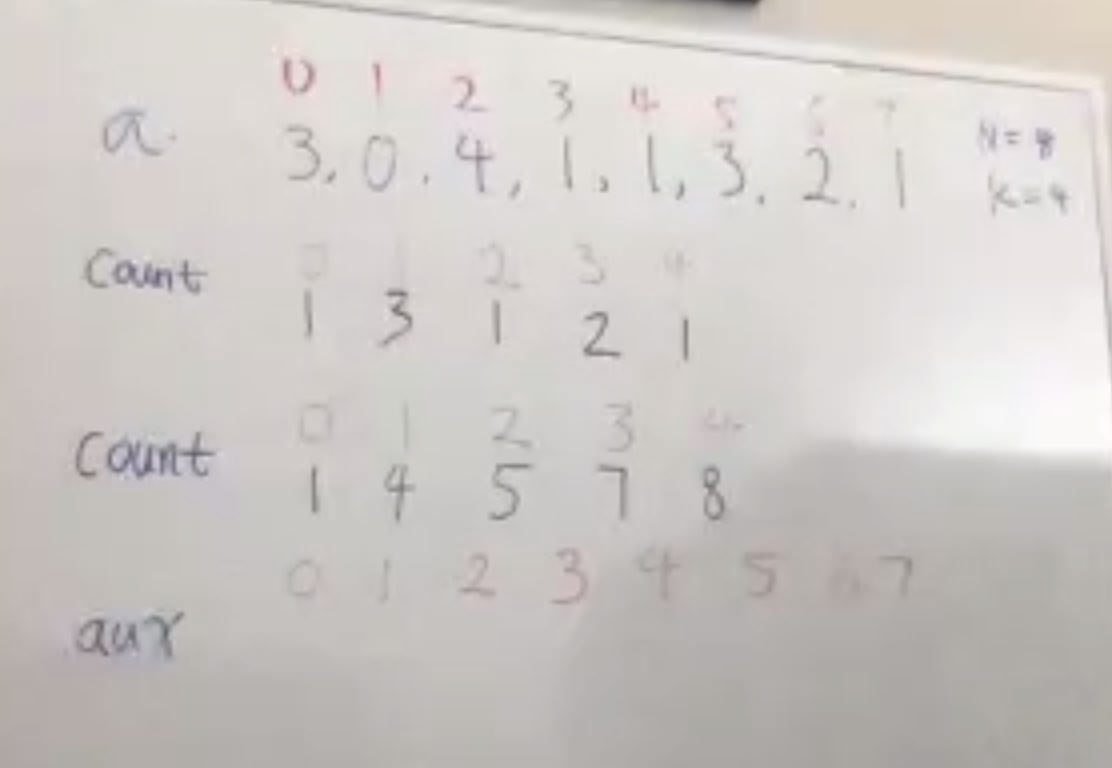 0 1 2 3 4 5 6 7
a. 3. 0. 4, 1, 1, 3. 2. 1
N = 8
K = 4
0 1 2 3 4
Count 1 3 1 2 1
0 1 2 3 4
Count 1 4 5 7 8
0 1 2 3 4 5 6 7
aux